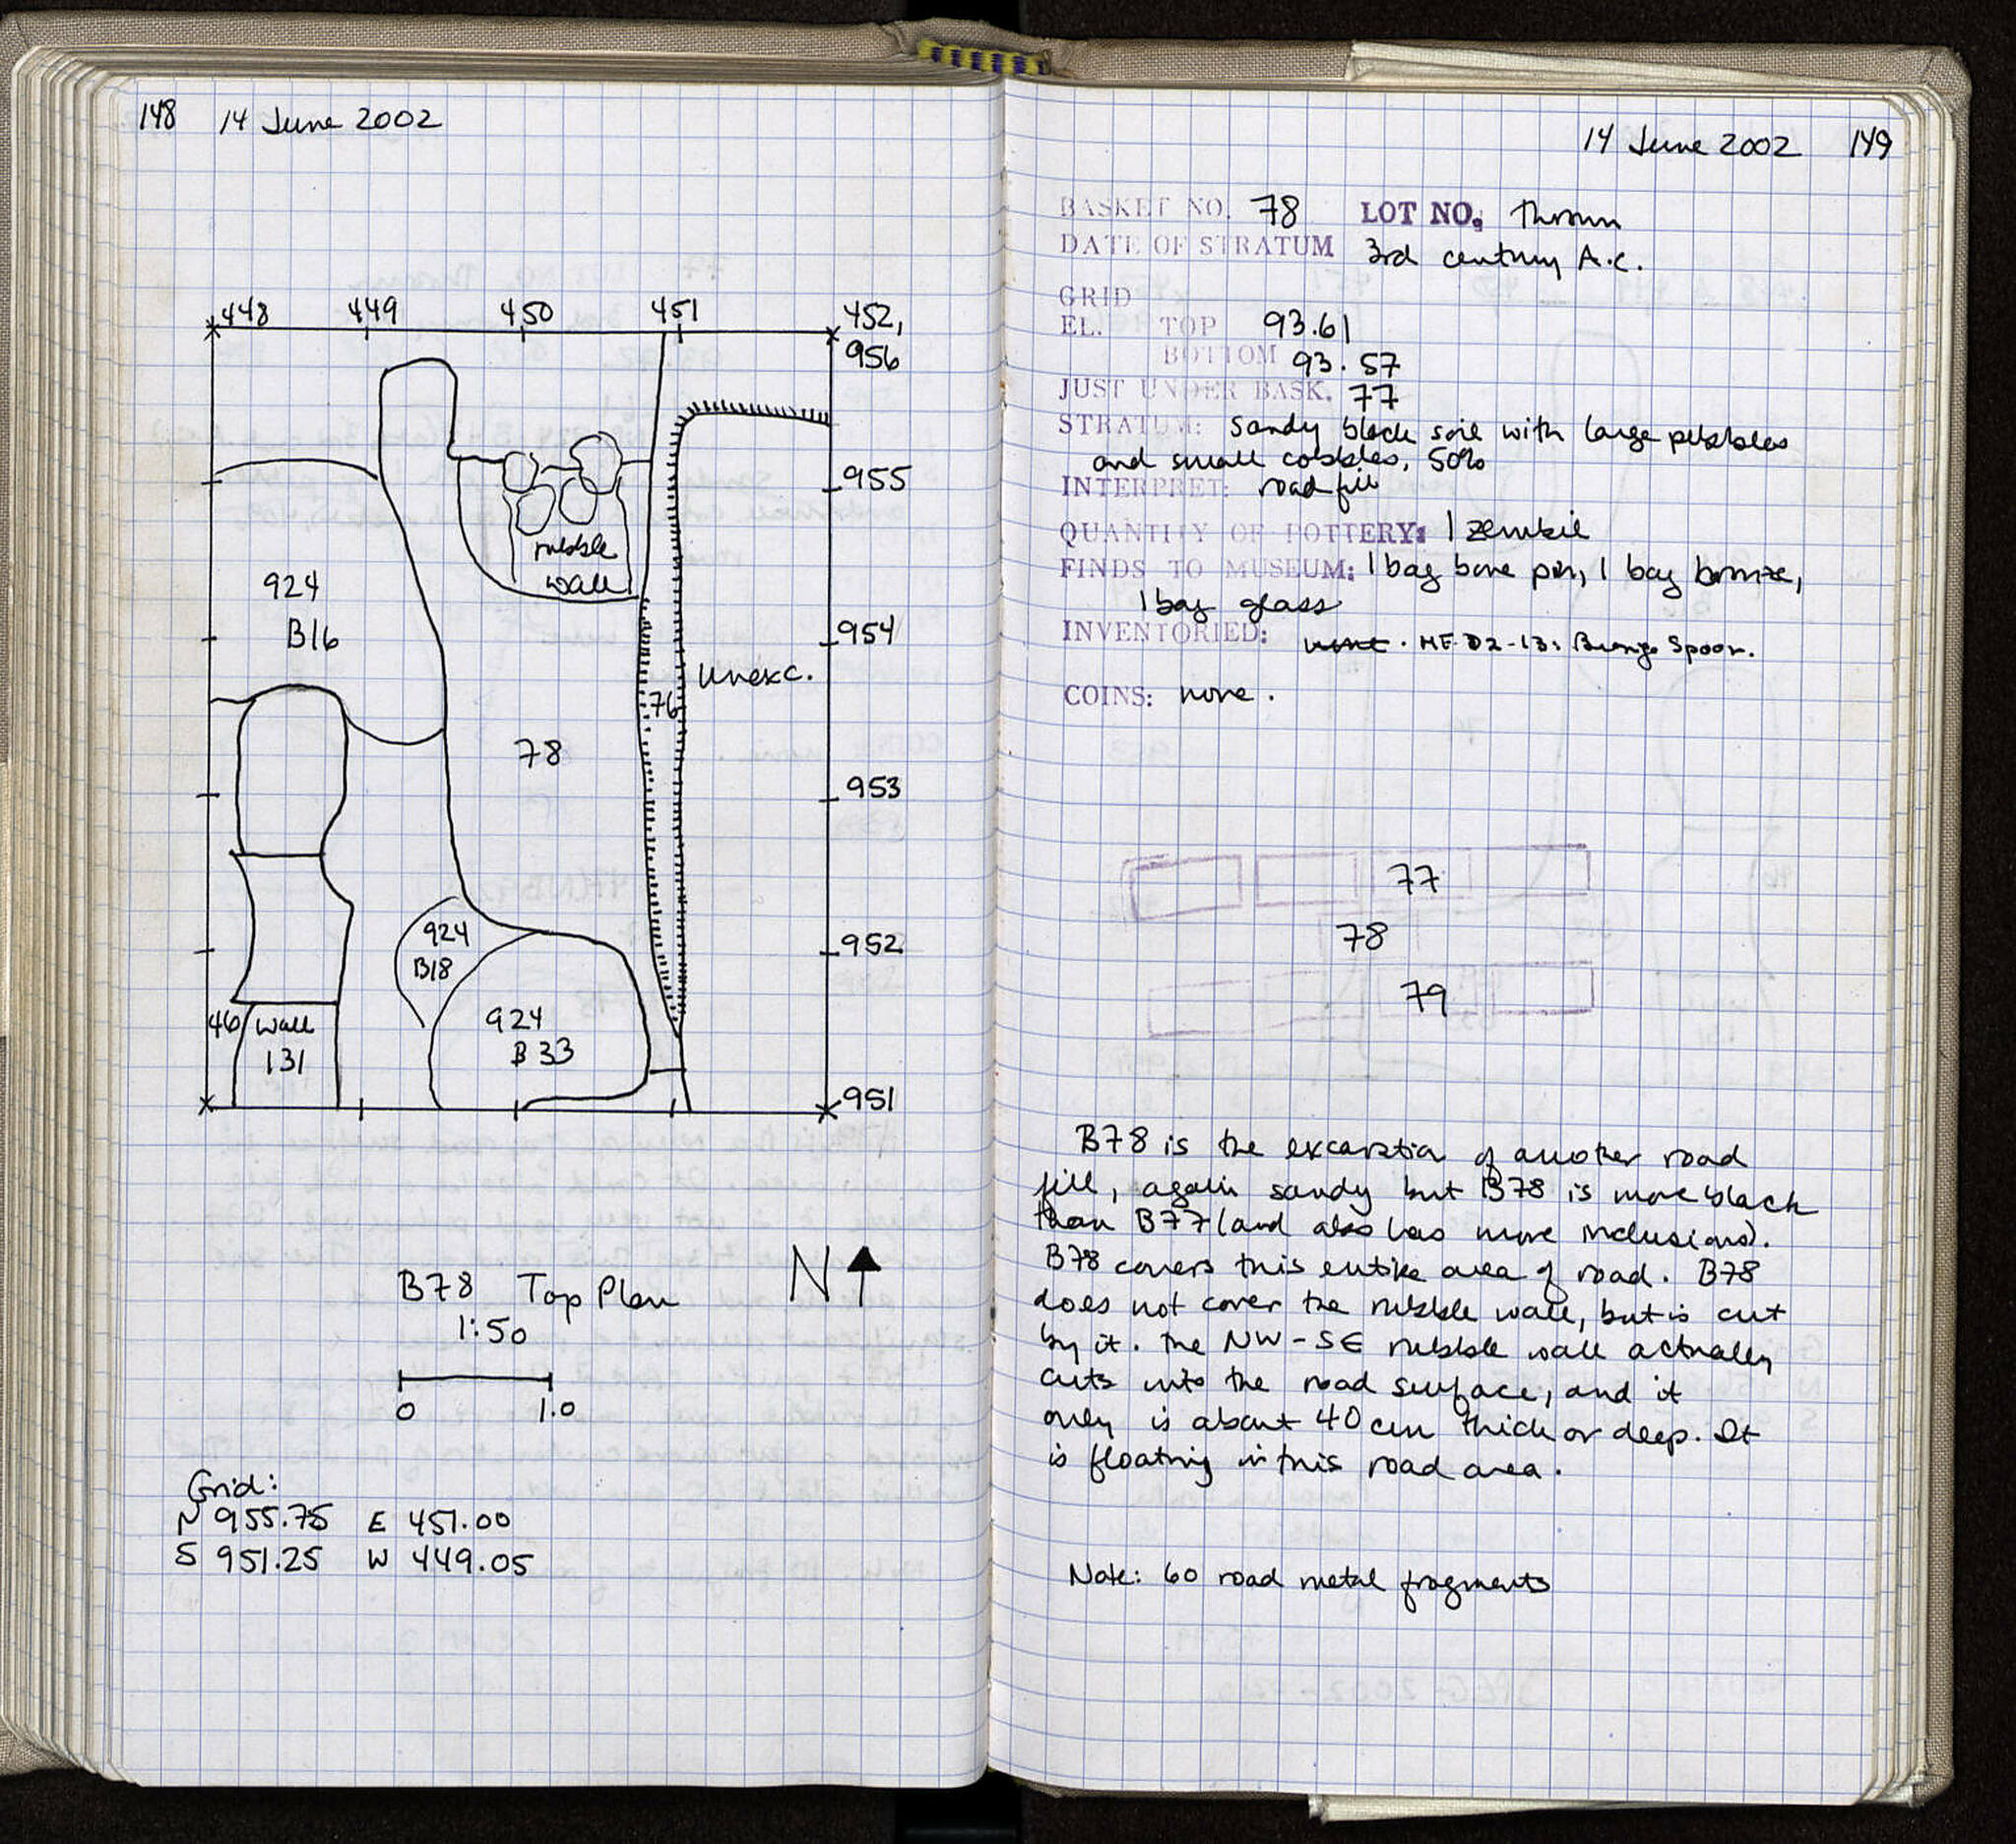 148 14 June 2002
448 449 450 451 452,
956
955
954
953
952
951
rubble
wall
924
B16
76
unexc.
78
924
B18
924
B33
46 wall
131
B78 Top Plan
1:50
N
0 1.0
Grid:
N 955.75 E 451.00
S 951.25 W 449.05
14 June 2002 149
BASKET NO. 78 LOT NO. thrown
DATE OF STRATUM 3rd century A.C.
GRID
EL. TOP 93.61
BOTTOM 93.57
JUST UNDER BASK. 77
STRATUM: sandy black soil with large pebbles
and small cobbles, 50%
INTERPRET: road fill
QUANTITY OF POTTERY: 1 zembil
FINDS TO MUSEUM: 1 bag bone pin, 1 bag bronze,
1 bag glass
INVENTORIED: none. MF 02-13: Bronze Spoon.
COINS: none.
77
78
79
B78 is the excavation of another road
fill, again sandy but B78 is more black
than B77 (and also has more inclusions).
B78 covers this entire area of road. B78
does not cover the rubble wall, but is cut
by it. The NW-SE rubble wall actually
cuts into the road surface, and it
only is about 40 cm thick or deep. It
is floating in this road area.
Note: 60 road metal fragments